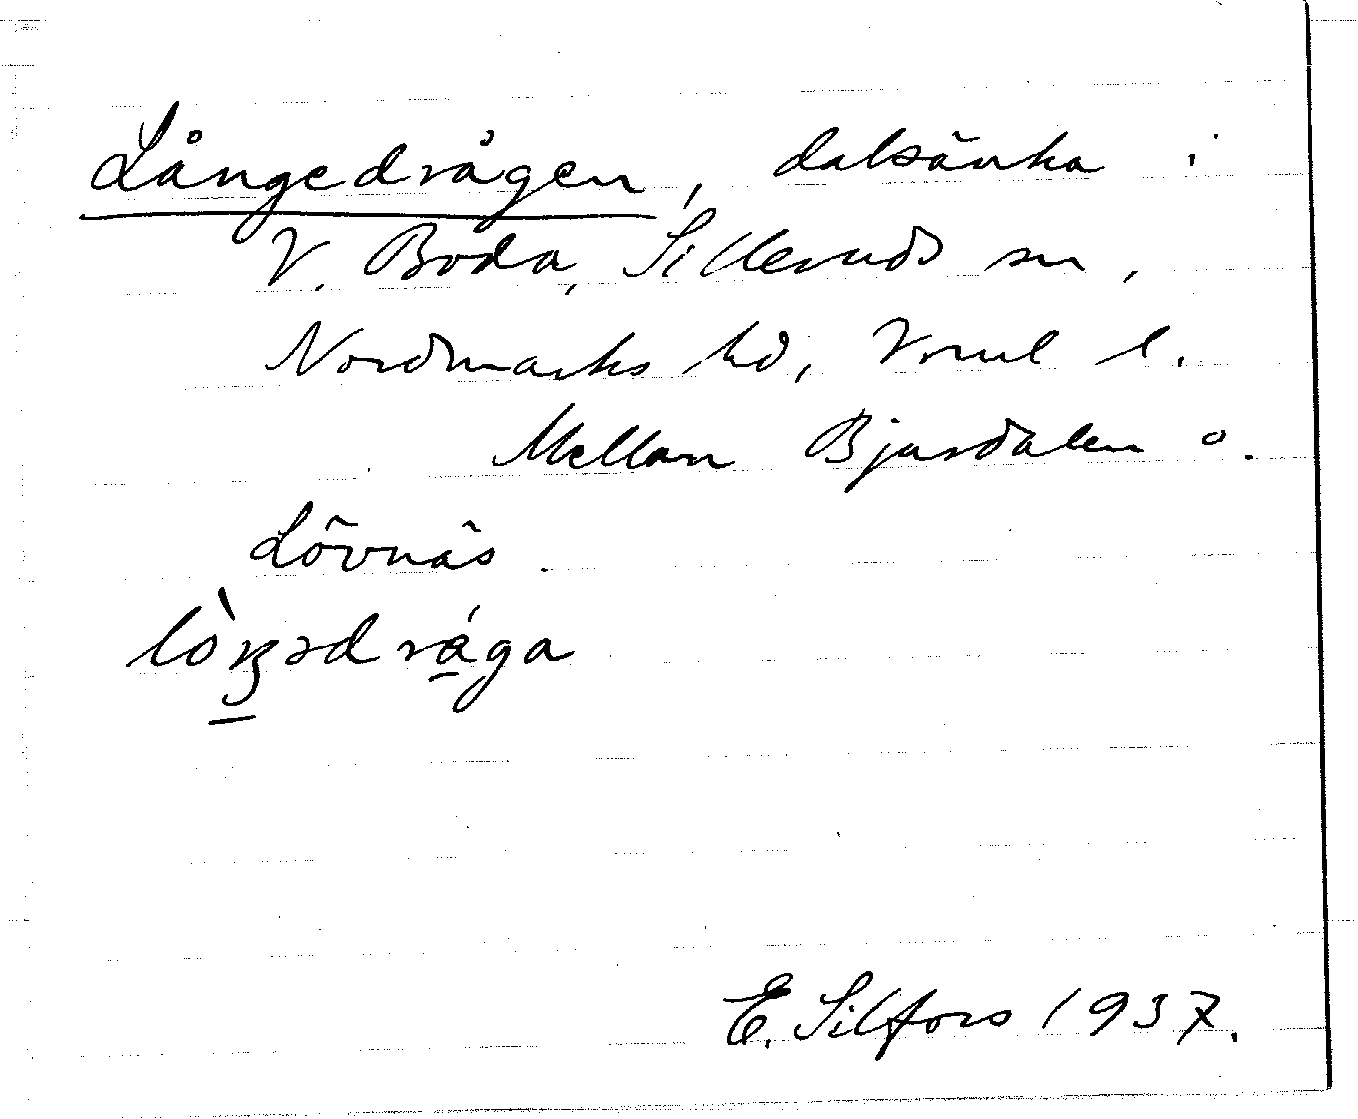 Långedrågen, dalsänka i
V. Boda, Silleruds sn,
Nordmarks hd, Vrml l.
Mellan Bjurdalen o.
Lövnäs.
lòŋədrága
E. Silfors 1937.